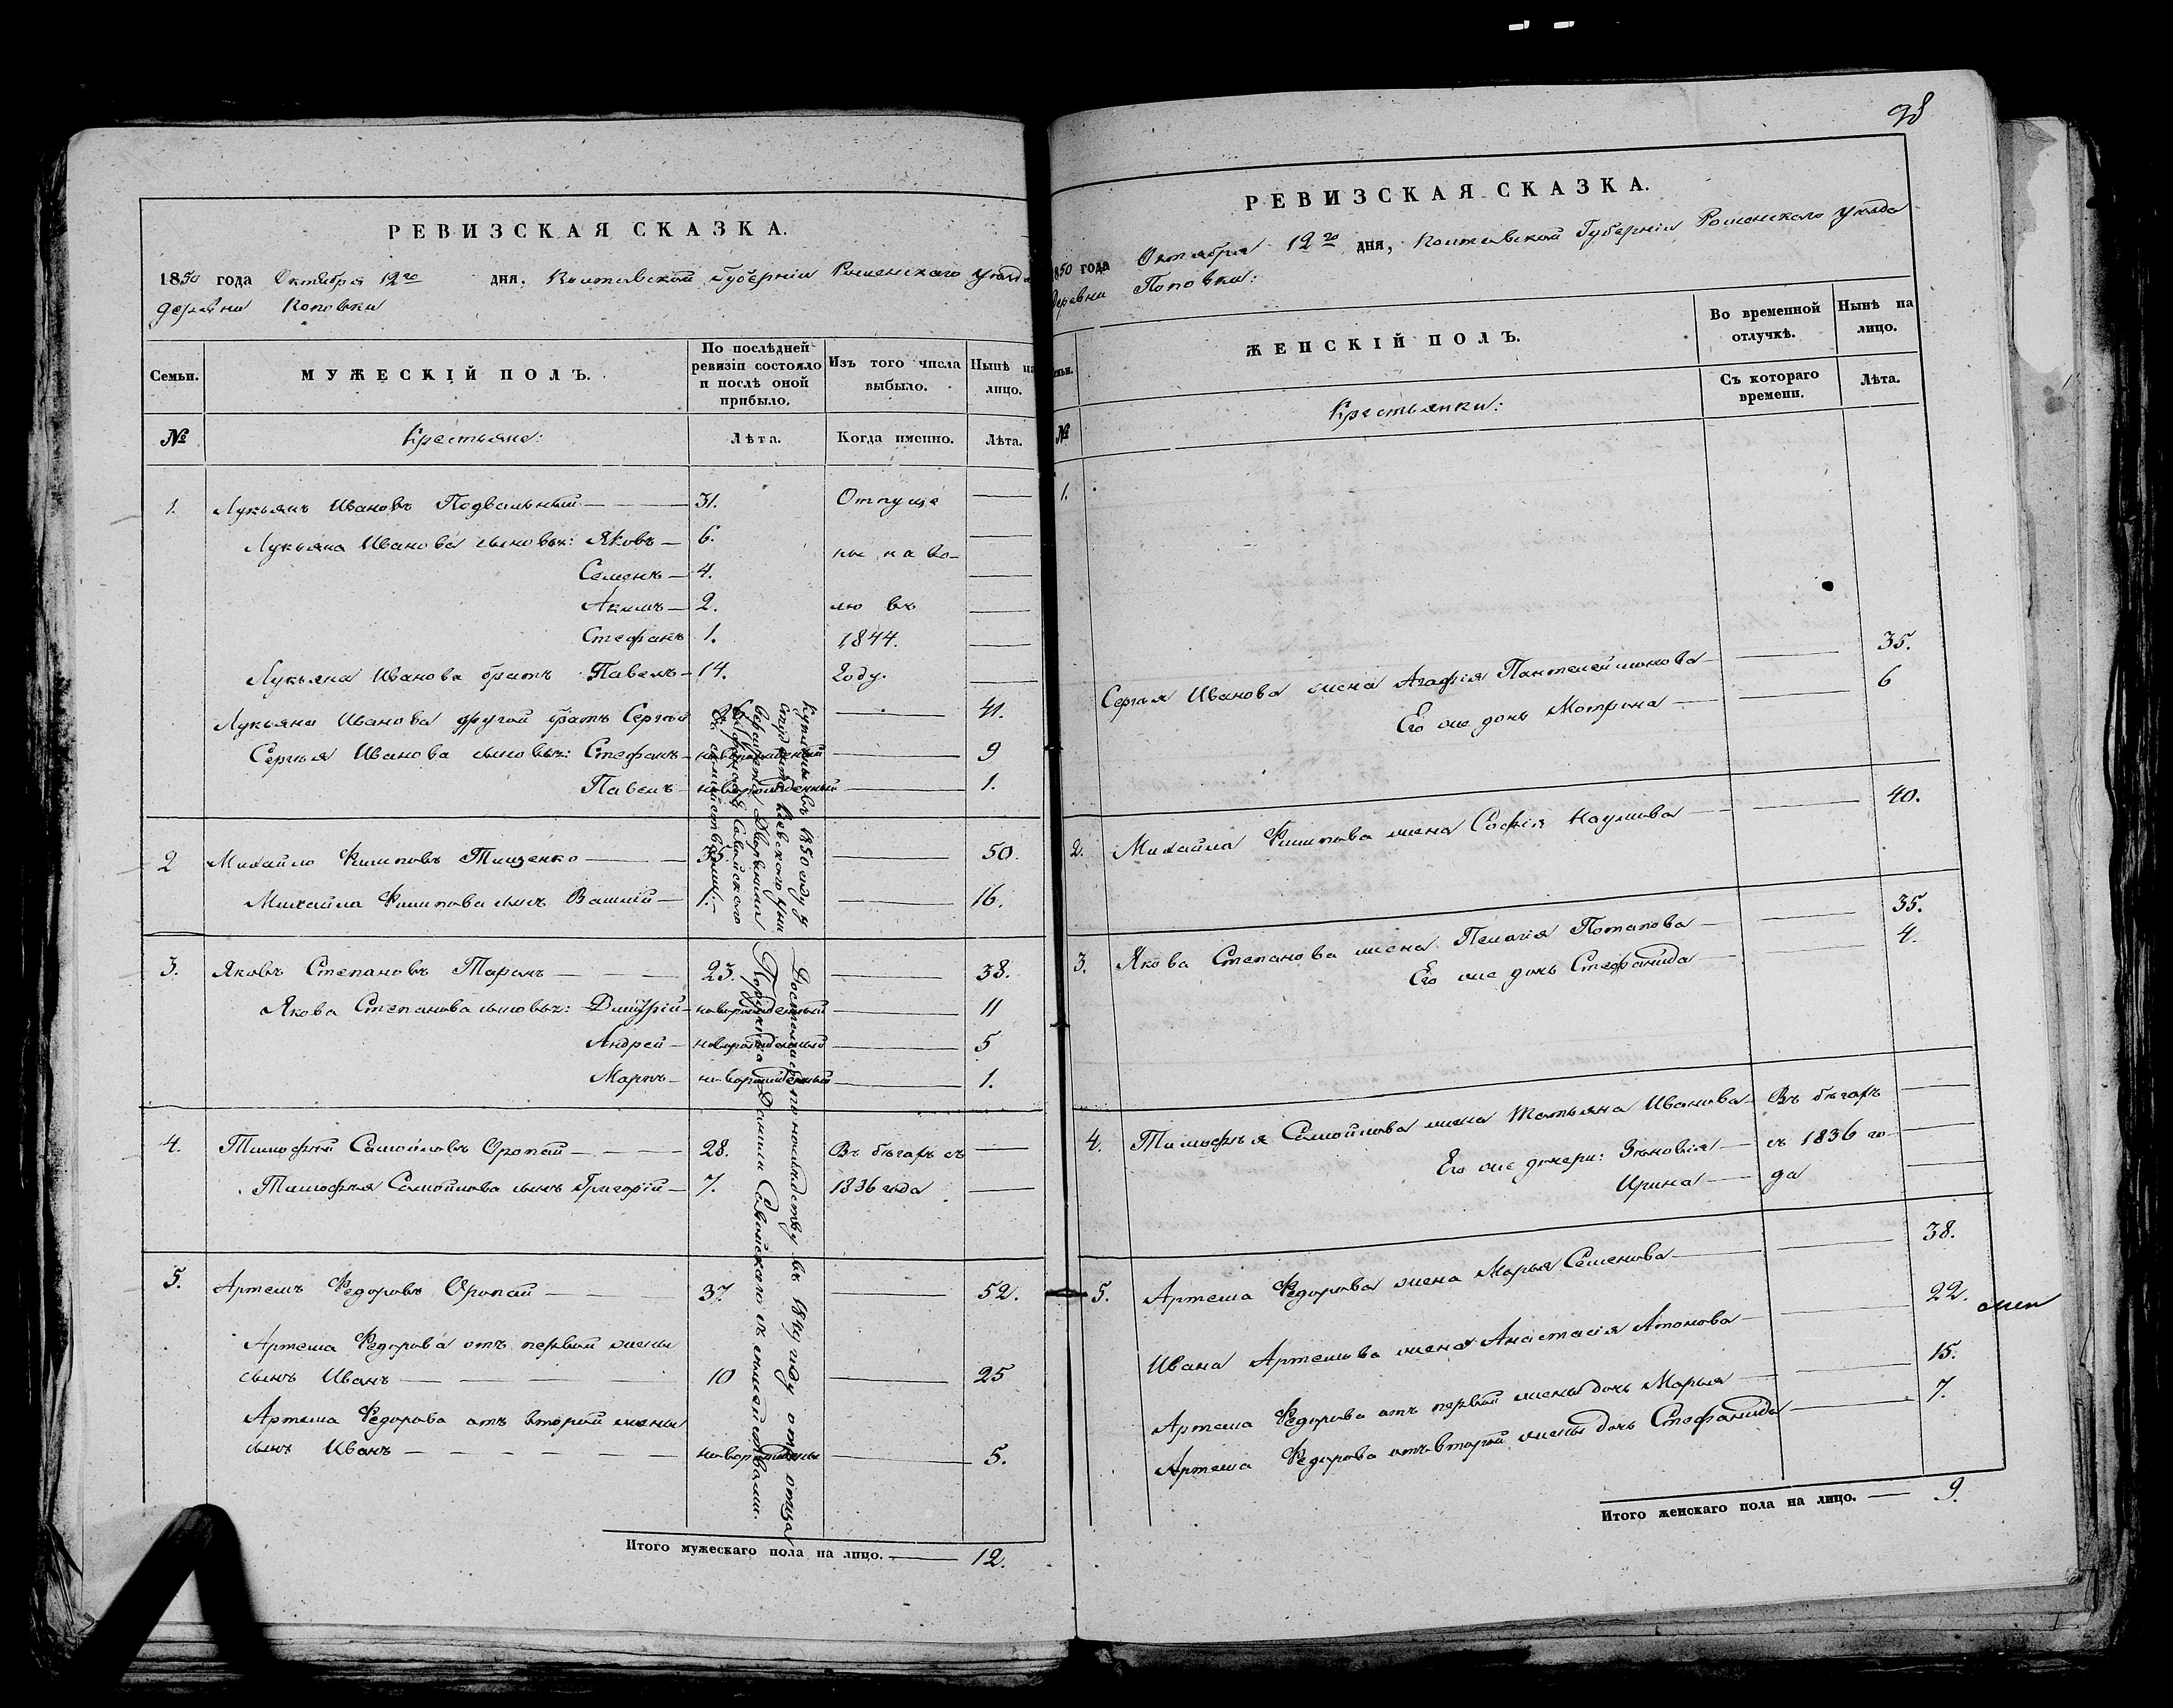 РЕВИЗСКАЯ СКАЗКА.
1850 года Октября 12го дня, Полтавской Губерніи Роменскаго уѣзда
деревни Поповки
Семьи.
МУЖЕСКІЙ ПОЛЪ.
По послѣдней ревизіи состояло и послѣ оной прибыло.
Изъ того числа выбыло.
Нынѣ на лицо.
№
Крестьяне:
Лѣта.
Когда именно.
Лѣта.
1. Лукьянъ Ивановъ Подвальный 31. Отпуще
Лукьяна Иванова сыновья: Яковъ 6. ны на во-
Семенъ 4.
Акимъ 2. лю въ
Стефанъ 1. 1844.
Лукьяна Иванова братъ Павелъ 14. году.
Лукьяна Иванова другой братъ Сергѣй 41.
Сергѣя Иванова сыновья: Стефанъ новорожденный 9
Павелъ новорожденный 1.
2 Михайло Филиповъ Тищенко 50.
Михайла Филипова сынъ Василій 1. 16.
3. Яковъ Степановъ Таранъ 23. 38.
Якова Степанова сыновья: Дмитрій новорожденный 11
Андрей новорожденный 5
Маркъ новорожденный 1.
4. Тимофѣй Самойловъ Оропай 28. Въ бѣгахъ съ
Тимофѣя Самойлова сынъ Григорій 7. 1836 года
5. Артемъ Федоровъ Оропай 37. 52.
Артема Федорова отъ первой жены
сынъ Иванъ 10 25
Артема Федорова отъ второй жены
сынъ Иванъ новорожденный 5.
Куплены въ 1850 году у
студента Кіевскаго уни
верситета Дворянина
Савойскаго
Достались по наслѣдству въ году отъ отца
Поручика Савойскаго
Итого мужескаго пола на лицо. 12.
98
РЕВИЗСКАЯ СКАЗКА.
1850 года Октября 12го дня, Полтавской Губерніи Роменскаго уѣзда
деревни Поповки:
Семьи.
ЖЕНСКІЙ ПОЛЪ.
Во временной отлучкѣ.
Нынѣ на лицо.
Съ котораго времени.
Лѣта.
№
Крестьянки:
1.
Сергѣя Иванова жена Агафія Пантелеймонова 35.
Его же дочь Мотрона 6
2. Михайла Филипова жена Софія Наумова 40.
3. Якова Степанова жена Пелагія Потапова 35.
Его же дочь Стефанида 4.
4. Тимофѣя Самойлова жена Татьяна Иванова Въ бѣгахъ
Его же дочери: Зѣновія съ 1836 го
Ирина да
5. Артема Федорова жена Марья Семенова 38.
Ивана Артемова жена Анастасія Атонова 22.
Артема Федорова отъ первой жены дочь Марья 15.
Артема Федорова отъ второй жены дочь Стефанида 7.
Итого женскаго пола на лицо. 9.